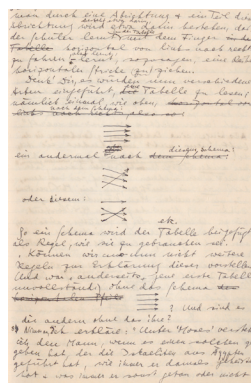 man durch eine Abrichtung; & ein Teil der
Abrichtung wird etwa darin bestehen, daß
der Schüler lernt, mit dem Finger in der
Tabelle horizontal von links nach rechts
zu fahren; lernt, sozusagen, eine Reihe
horizontaler Striche zu ziehen.
Denk Dir, es würden nun verschiedene
Arten eingeführt, eine Tabelle zu lesen;
nämlich einmal, wie oben,
ein andermal nach diesem Schema:
oder diesem:
etc.
So ein Schema wird der Tabelle beigefügt
als Regel, wie sie zu gebrauchen sei.
Können wir nun nicht weitere
Regeln zur Erklärung dieser vorstellen?
Und war, anderseits, jene erste Tabelle
unvollständig ohne das Schema
? Und sind es
die andern ohne das ihre?
Nimm, ich erkläre: "Unter 'Moses' verstehe
ich den Mann, wenn es einen solchen ge-
geben hat, der die Israeliten aus Ägypten
geführt hat, wie immer er damals geheißen
hat & was immer er sonst getan oder nicht